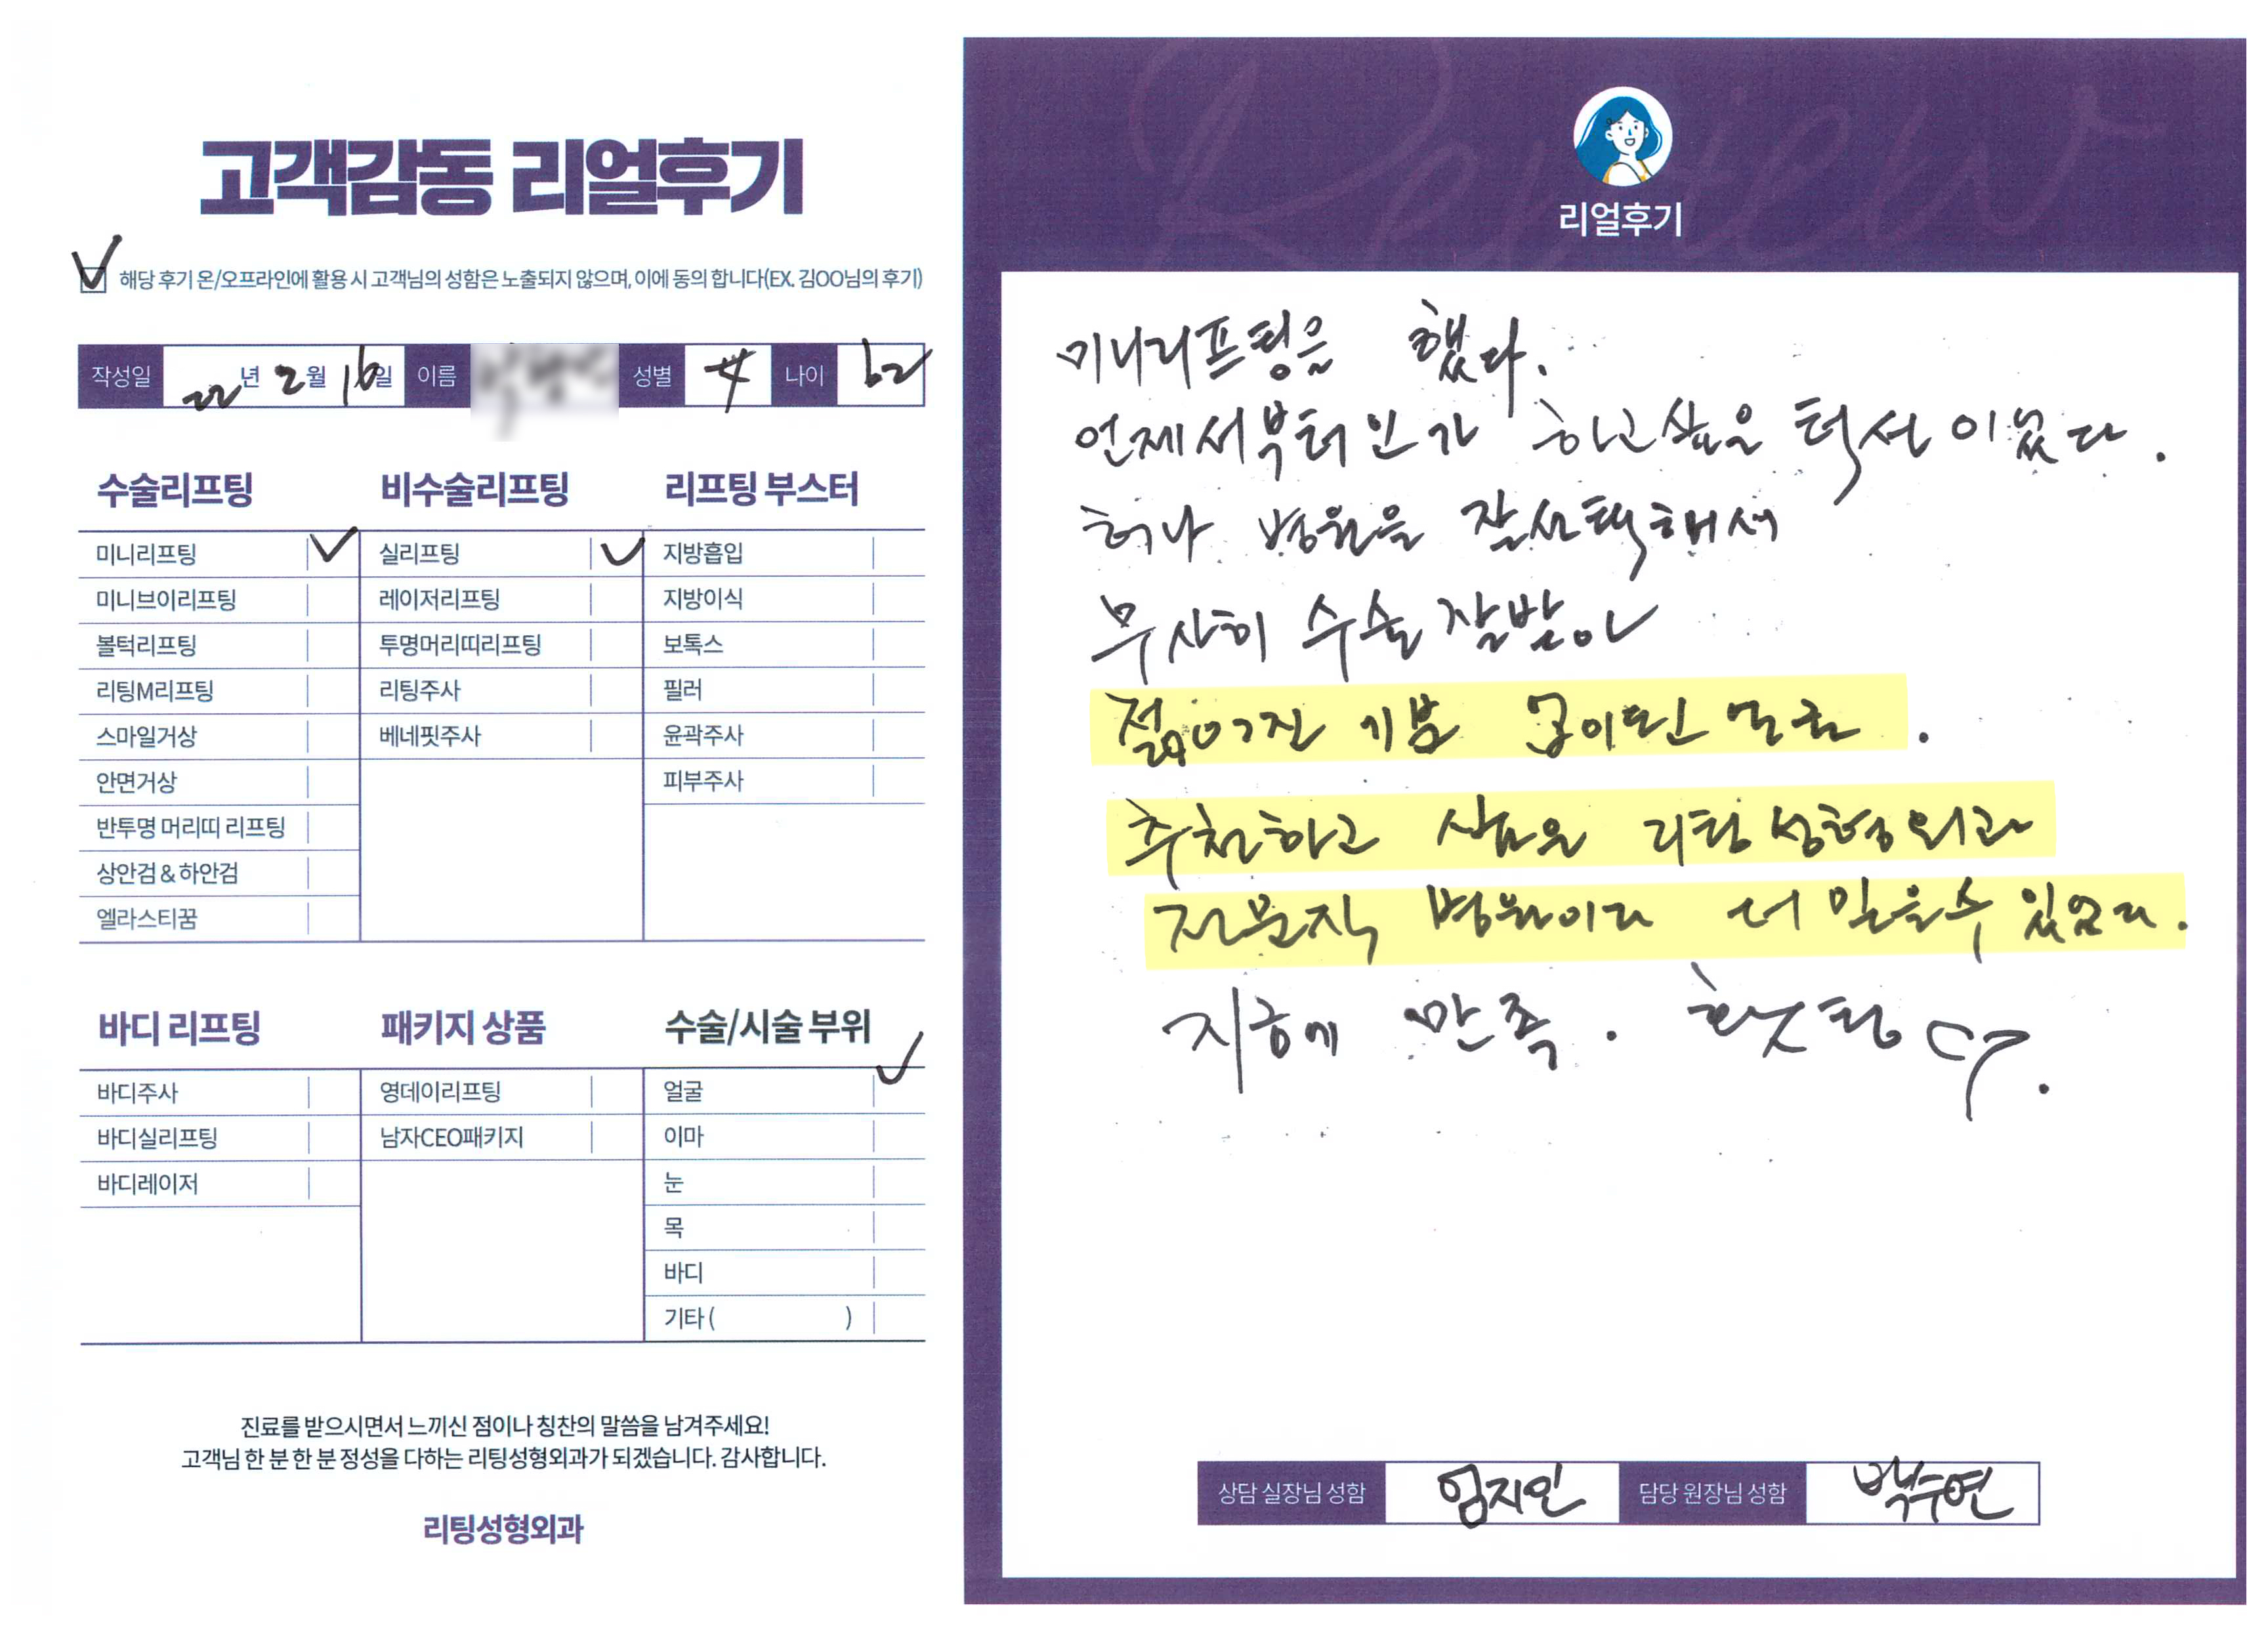 고객감동 리얼후기
해당 후기 온/오프라인에 활용 시 고객님의 성함은 노출되지 않으며, 이에 동의 합니다(EX. 김OO님의 후기)
작성일 22년 2월 16일 이름 성별 여 나이 62
수술리프팅
미니리프팅
미니브이리프팅
볼턱리프팅
리팅M리프팅
스마일거상
안면거상
반투명 머리띠 리프팅
상안검 & 하안검
엘라스티꿈
비수술리프팅
실리프팅
레이저리프팅
투명머리띠리프팅
리팅주사
베네핏주사
리프팅 부스터
지방흡입
지방이식
보톡스
필러
윤곽주사
피부주사
바디 리프팅
바디주사
바디실리프팅
바디레이저
패키지 상품
영데이리프팅
남자CEO패키지
수술/시술 부위
얼굴
이마
눈
목
바디
기타 ( )
진료를 받으시면서 느끼신 점이나 칭찬의 말씀을 남겨주세요!
고객님 한 분 한 분 정성을 다하는 리팅성형외과가 되겠습니다. 감사합니다.
리팅성형외과
Review
리얼후기
미니리프팅을 했다.
언제서부터인가 하고싶은 턱선이었다.
허나 병원을 잘선택해서
무사히 수술 잘받아
젊어진 기분 얼굴.
추천하고 싶은 리팅성형외과
전문직 병원이라 더 믿을수 있었다.
지금에 만족. 홧팅
상담 실장님 성함 엄지인 담당 원장님 성함 백수연